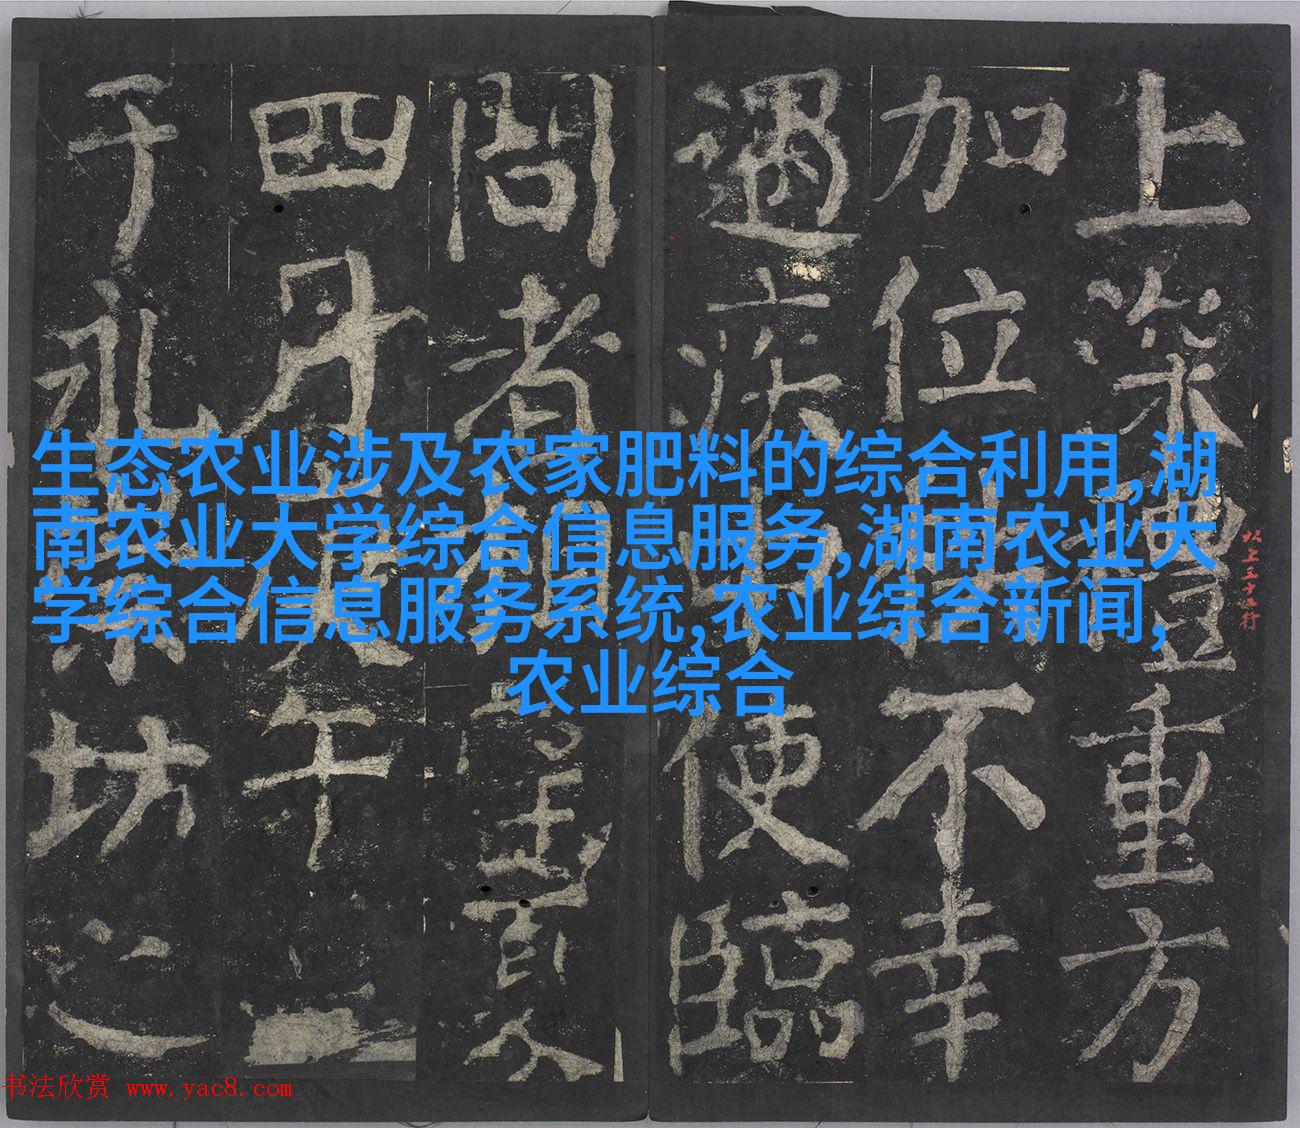 生态农业涉及农家肥料的综合利用,湖
南农业大学综合信息服务,湖南农业大
学综合信息服务系统,农业综合新闻,
农业综合
上重方
加位不幸
遇疾便臨
問者
四月午
于永樂坊之
以上五十行
书法欣赏 www.yac8.com